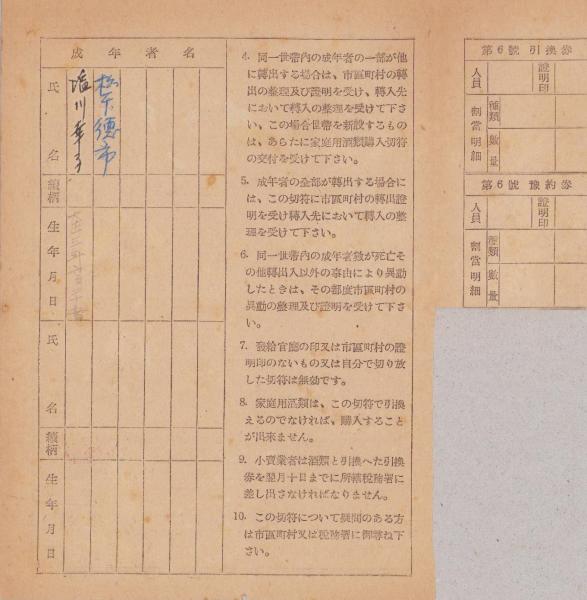 成年者名
氏名
塩川幸子
松下徳市
續柄
生年月日
氏名
續柄
生年月日
4. 同一世帶內の成年者の一部が他
に轉出する場合は、市區町村の轉
出の整理及び證明を受け、轉入先
において轉入の整理を受けて下さ
い、この場合世帶を新設するもの
は、あらたに家庭用酒類購入切符
の交付を受けて下さい。
5. 成年者の全部が轉出する場合に
は、この切符に市區町村の轉出證
明を受け轉入先において轉入の整
理を受けて下さい。
6. 同一世帶內の成年者數が死亡そ
の他轉出入以外の事由により異動
したときは、その都度市區町村の
異動の整理及び證明を受けて下さ
い。
7. 發給官廳の印又は市區町村の證
明印のないもの又は自分で切り放
した切符は無効です。
8. 家庭用酒類は、この切符で引換
えるのでなければ、購入すること
が出來ません。
9. 小賣業者は酒類と引換へた引換
券を翌月十日までに所轄稅務署に
差し出さなければなりません。
10. この切符について疑問のある方
は市區町村又は稅務署に御尋ね下
さい。
第6號引換券
人員
證明印
割當明細
種類
數量
第6號豫約券
人員
證明印
割當明細
種類
數量